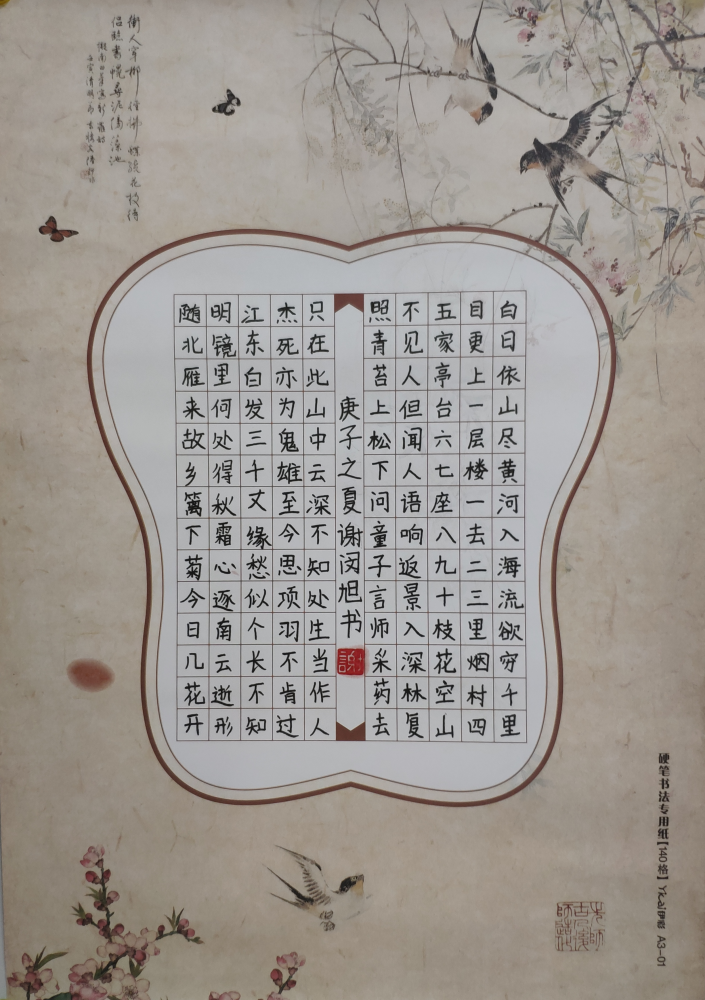 白日依山尽黄河入海流欲穷千里
目更上一层楼一去二三里烟村四
五家亭台六七座八九十枝花空山
不见人但闻人语响返景入深林复
照青苔上松下问童子言师采药去
庚子之夏谢闵旭书
謝
只在此山中云深不知处生当作人
杰死亦为鬼雄至今思项羽不肯过
江东白发三千丈缘愁似个长不知
明镜里何处得秋霜心逐南云逝形
随北雁来故乡篱下菊今日几花开
硬笔书法专用纸【140格】 A3-01